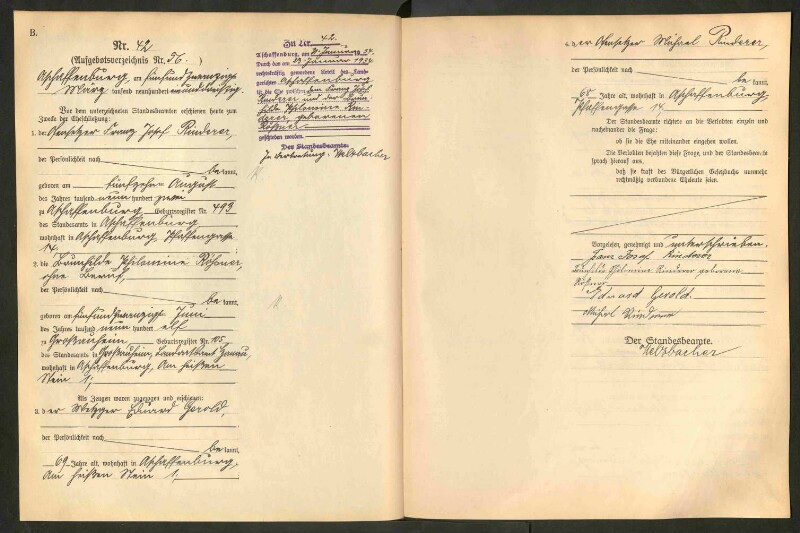 B.
Nr. 42
(Aufgebotsverzeichnis Nr. 56.)
Aschaffenburg, am fünfundzwanzigsten
März tausend neunhundert
Vor dem unterzeichneten Standesbeamten erschienen heute zum
Zwecke der Eheschließung:
1. der Ofensetzer Franz Josef Rinderer,
der Persönlichkeit nach
be kannt,
geboren am fünfzehnten August
des Jahres tausend neun hundert zwei
zu Aschaffenburg, Geburtsregister Nr. 493
des Standesamts in Aschaffenburg,
wohnhaft in Aschaffenburg, Pfaffengasse
14.
2. die Brunhilde Philomine Rößner,
ohne Beruf,
der Persönlichkeit nach
be kannt,
geboren am fünfundzwanzigsten Juni
des Jahres tausend neun hundert elf
zu Großauheim, Geburtsregister Nr. 105,
des Standesamts in Großauheim, Landratsamt Hanau,
wohnhaft in Aschaffenburg, Am heißen
Stein 1,
Als Zeugen waren zugezogen und erschienen:
3. der Metzger Eduard Gerold,
der Persönlichkeit nach
be kannt,
69 Jahre alt, wohnhaft in Aschaffenburg,
Am heißen Stein 1,
Zu Nr. 42.
Aschaffenburg, am Januar 34.
Durch das am 23. Januar 1934
rechtskräftig gewordene Urteil des Landgerichtes
Aschaffenburg
ist die Ehe zwischen dem Franz Josef
Rinderer und der Brunhilde
Philomine Rinderer,
geborenen
Rößner
geschieden worden.
Der Standesbeamte.
In Vertretung: Welzbacher
4. der Ofensetzer Michael Rinderer,
der Persönlichkeit nach
be kannt,
65 Jahre alt, wohnhaft in Aschaffenburg,
Pfaffengasse 14.
Der Standesbeamte richtete an die Verlobten einzeln und
nacheinander die Frage:
ob sie die Ehe miteinander eingehen wollen.
Die Verlobten bejahten diese Frage, und der Standesbeamte
sprach hierauf aus,
daß sie kraft des Bürgerlichen Gesetzbuchs nunmehr
rechtmäßig verbundene Eheleute seien.
Vorgelesen, genehmigt und unterschrieben.
Franz Josef Rinderer
Philomine Rinderer geborene
Rößner
Eduard Gerold.
Michael Rinderer
Der Standesbeamte.
Welzbacher